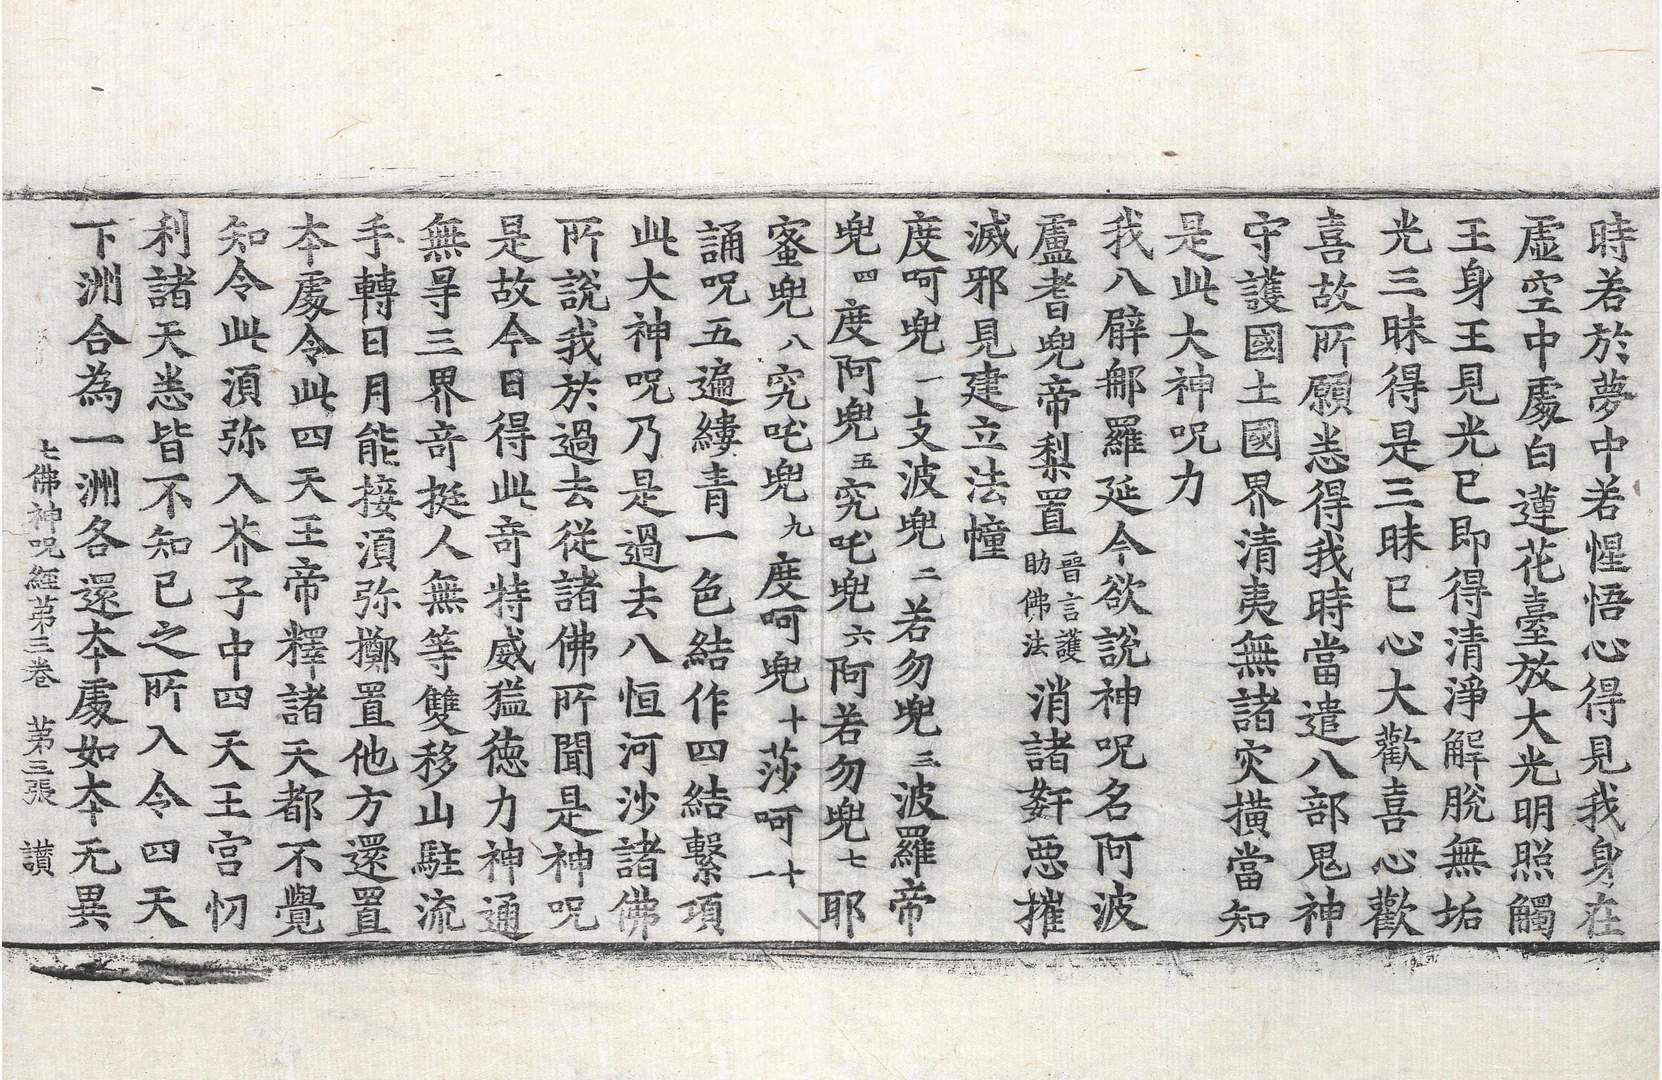 時若於夢中若惺悟心得見我身在
虛空中處白蓮花臺放大光明照觸
王身王見光已即得清淨解脫無垢
光三昧得是三昧已心大歡喜心歡
喜故所願悉得我時當遣八部鬼神
守護國土國界清夷無諸灾橫當知
是此大神呪力
我八臂那羅延今欲說神呪名阿波
盧耆兜帝梨置晉言護助佛法消諸姧惡摧
滅邪見建立法幢
度呵兜一支波兜二若勿兜三波羅帝
兜四度阿兜五究吒兜六阿若勿兜七耶
蜜兜八究吒兜九度呵兜十莎呵十一
誦呪五遍縷青一色結作四結繫項
此大神呪乃是過去八恒河沙諸佛
所說我於過去從諸佛所聞是神呪
是故今日得此奇特威猛德力神通
無㝵三界奇挺人無等雙移山駐流
手轉日月能接湏弥擲置他方還置
夲處令此四天王帝釋諸天都不覺
知令此湏弥入芥子中四天王宮忉
利諸天悉皆不知已之所入令四天
下洲合為一洲各還夲處如夲无異
七佛神呪經苐三卷 苐三張 讃